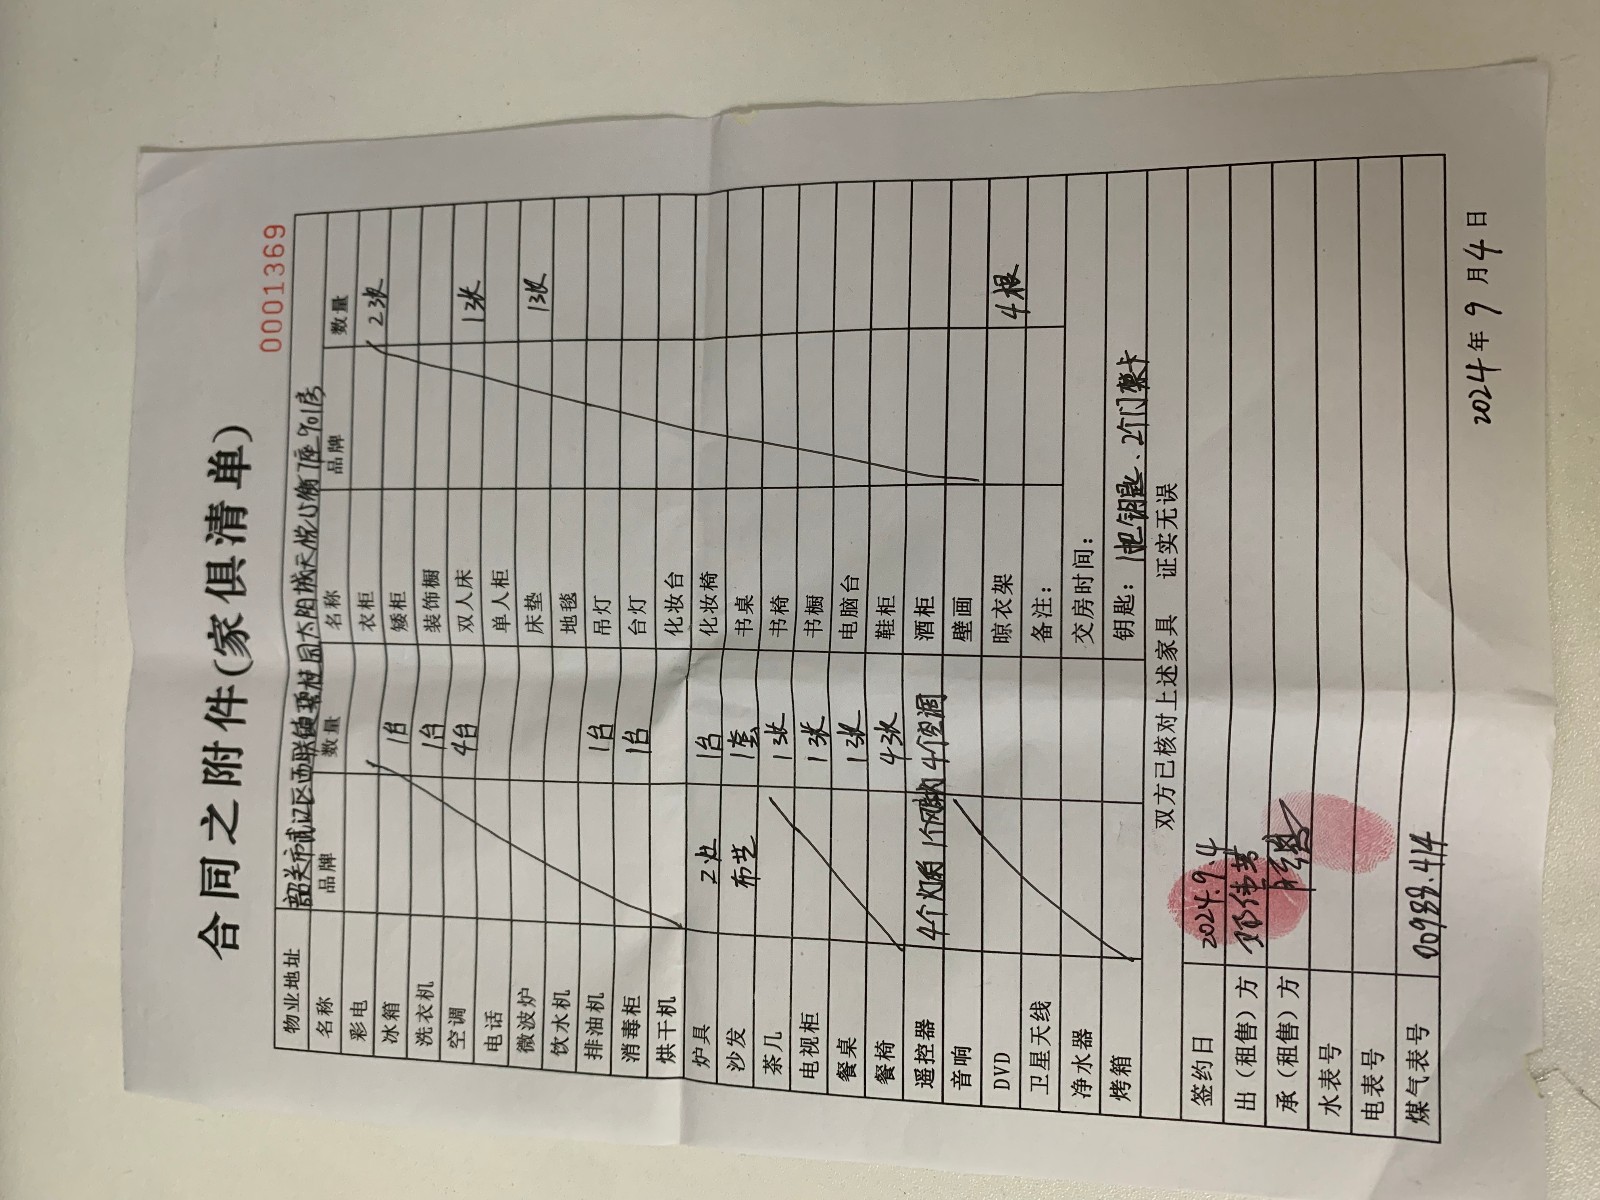 合同之附件(家俱清单)
0001369
物业地址 韶关市武江区西联镇碧桂园太阳城天悦山衡7座901房
名称 品牌 数量 名称 品牌 数量
彩电 衣柜 2张
冰箱 1台 矮柜
洗衣机 1台 装饰橱
空调 4台 双人床 1张
电话 单人柜
微波炉 床垫 1张
饮水机 地毯
排油机 1台 吊灯
消毒柜 1台 台灯
烘干机 化妆台
炉具 2灶 1台 化妆椅
沙发 布艺 1套 书桌
茶几 1张 书椅
电视柜 1张 书橱
餐桌 1张 电脑台
餐椅 4张 鞋柜
遥控器 4个 1个 4个空调 酒柜
音响 壁画
DVD 晾衣架 4根
卫星天线 备注:
净水器 交房时间:
烤箱 钥匙: 1把钥匙、2个门禁卡
双方已核对上述家具 证实无误
签约日 2024.9.4
出(租售)方 邓伟
承(租售)方
水表号
电表号
煤气表号
2024年9月4日